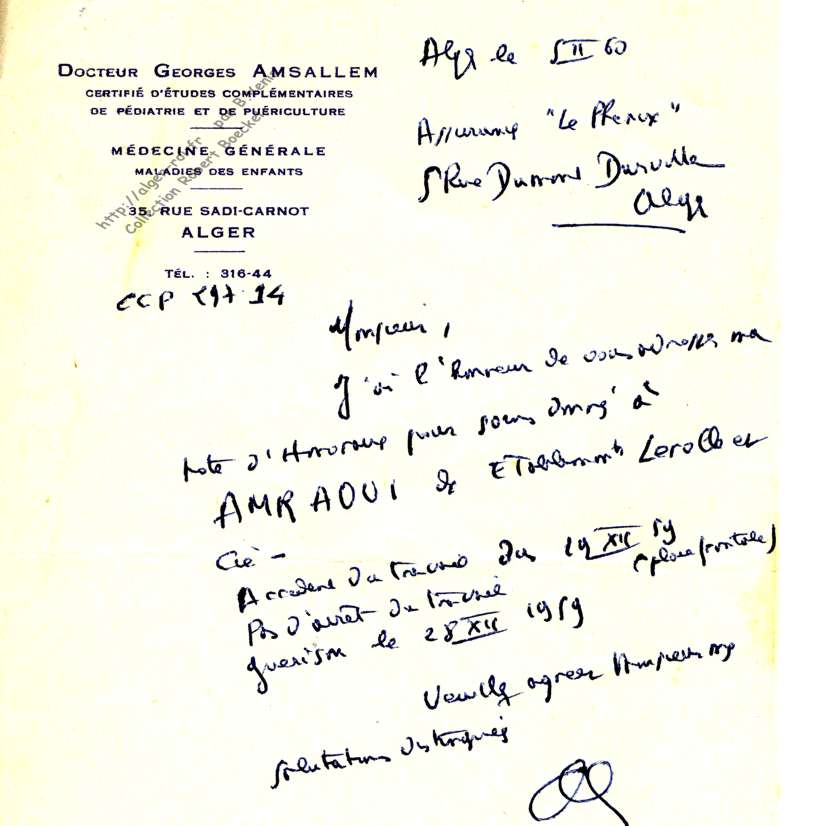 DOCTEUR GEORGES AMSALLEM
CERTIFIÉ D'ÉTUDES COMPLÉMENTAIRES
DE PÉDIATRIE ET DE PUÉRICULTURE
MÉDECINE GÉNÉRALE
MALADIES DES ENFANTS
35, RUE SADI-CARNOT
ALGER
TÉL. : 316-44
CCP 14
http://alger-roi.fr par B.Venis
Collection Robert Boecker
Alger le 5 II 60
Assurance "Le Phenix"
5 Rue Dumont Durville
Alger
Monsieur,
J'ai l'honneur de vous adresser ma
note d'Honoraires pour soins donnés à
AMRAOUI de Etablissements Lerolle et
Cie -
Accident du travail du 19 XII 59
(plaie frontale)
Pas d'arrêt du travail
guerison le 28 XII 1959
Veuillez agréer Monsieur mes
salutations distinguées